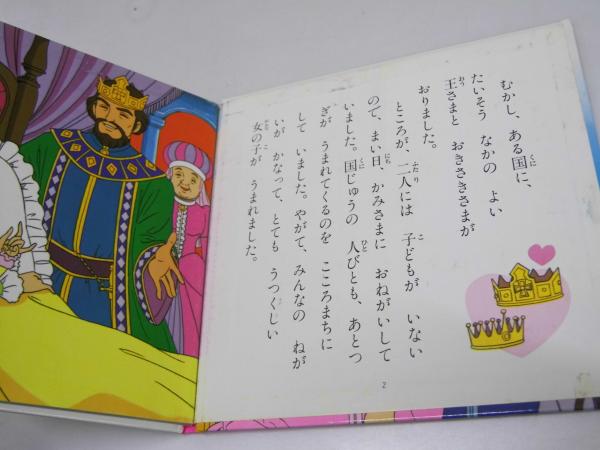 むかし、ある国に、
たいそう なかの よい
王さまと おきさきさまが
おりました。
ところが、二人には 子どもが いない
ので、まい日、かみさまに おねがいして
いました。国じゅうの 人びとも、あとつ
ぎが うまれてくるのを こころまちに
して いました。やがて、みんなの ねが
いが かなって、とても うつくしい
女の子が うまれました。
2